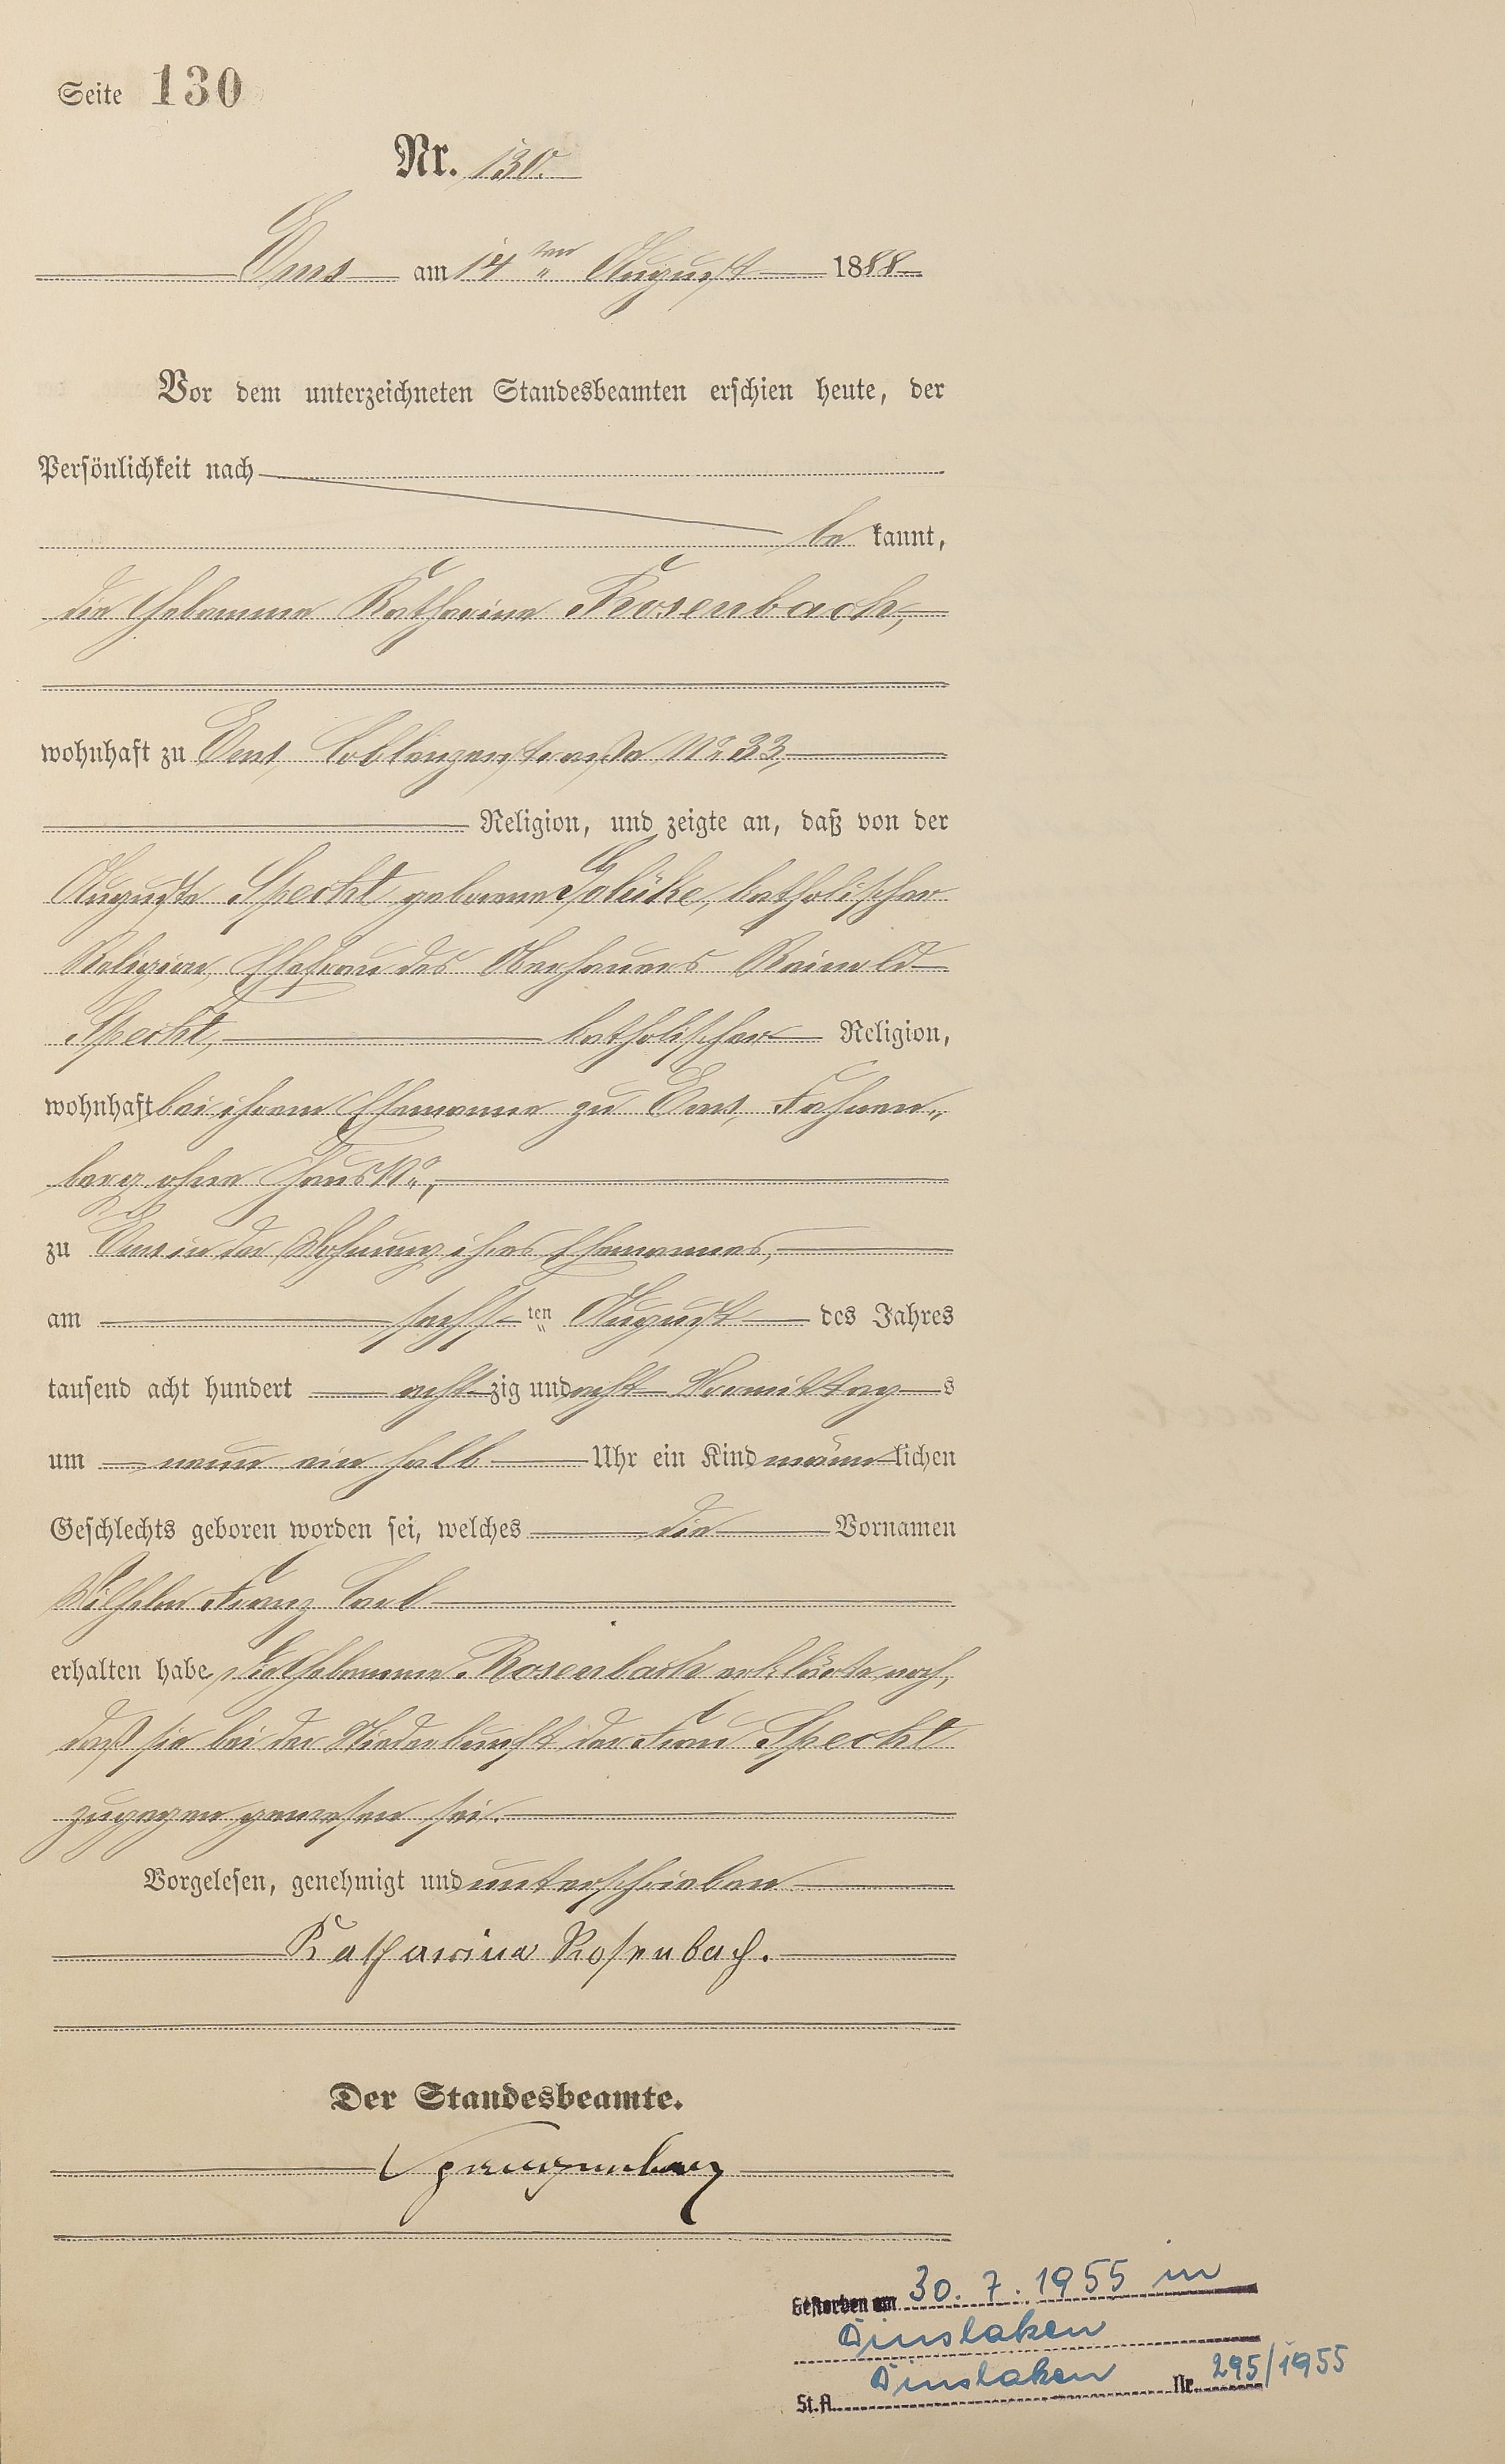 Seite 130
Nr. 130.
Ems am 14ten August 1888
Vor dem unterzeichneten Standesbeamten erschien heute, der
Persönlichkeit nach
be kannt,
die Hebamme Katharina Rosenbach,
wohnhaft zu Ems, Coblenzerstraße No 33,
Religion, und zeigte an, daß von der
Auguste Specht geborene Golüke, katholischer
Religion, Ehefrau des Oberhauers Reinold
Specht, katholischer Religion,
wohnhaft bei ihrem Ehemanne zu Ems, Fahnen„
berg ohne Haus No,
zu Ems in der Wohnung ihres Ehemannes,
am sechsten August des Jahres
tausend acht hundert achtzig und acht Vormittags
um neun ein halb Uhr ein Kind männlichen
Geschlechts geboren worden sei, welches die Vornamen
Wilhelm Franz Carl
erhalten habe, Die Hebamme Rosenbach erklärte noch,
daß sie bei der Niederkunft der Frau Specht
zugegen gewesen sei.
Vorgelesen, genehmigt und unterschrieben
Katharina Rosenbach.
Der Standesbeamte.
Gestorben am 30. 7. 1955 in
Dinslaken
St.A. Dinslaken Nr. 295/1955